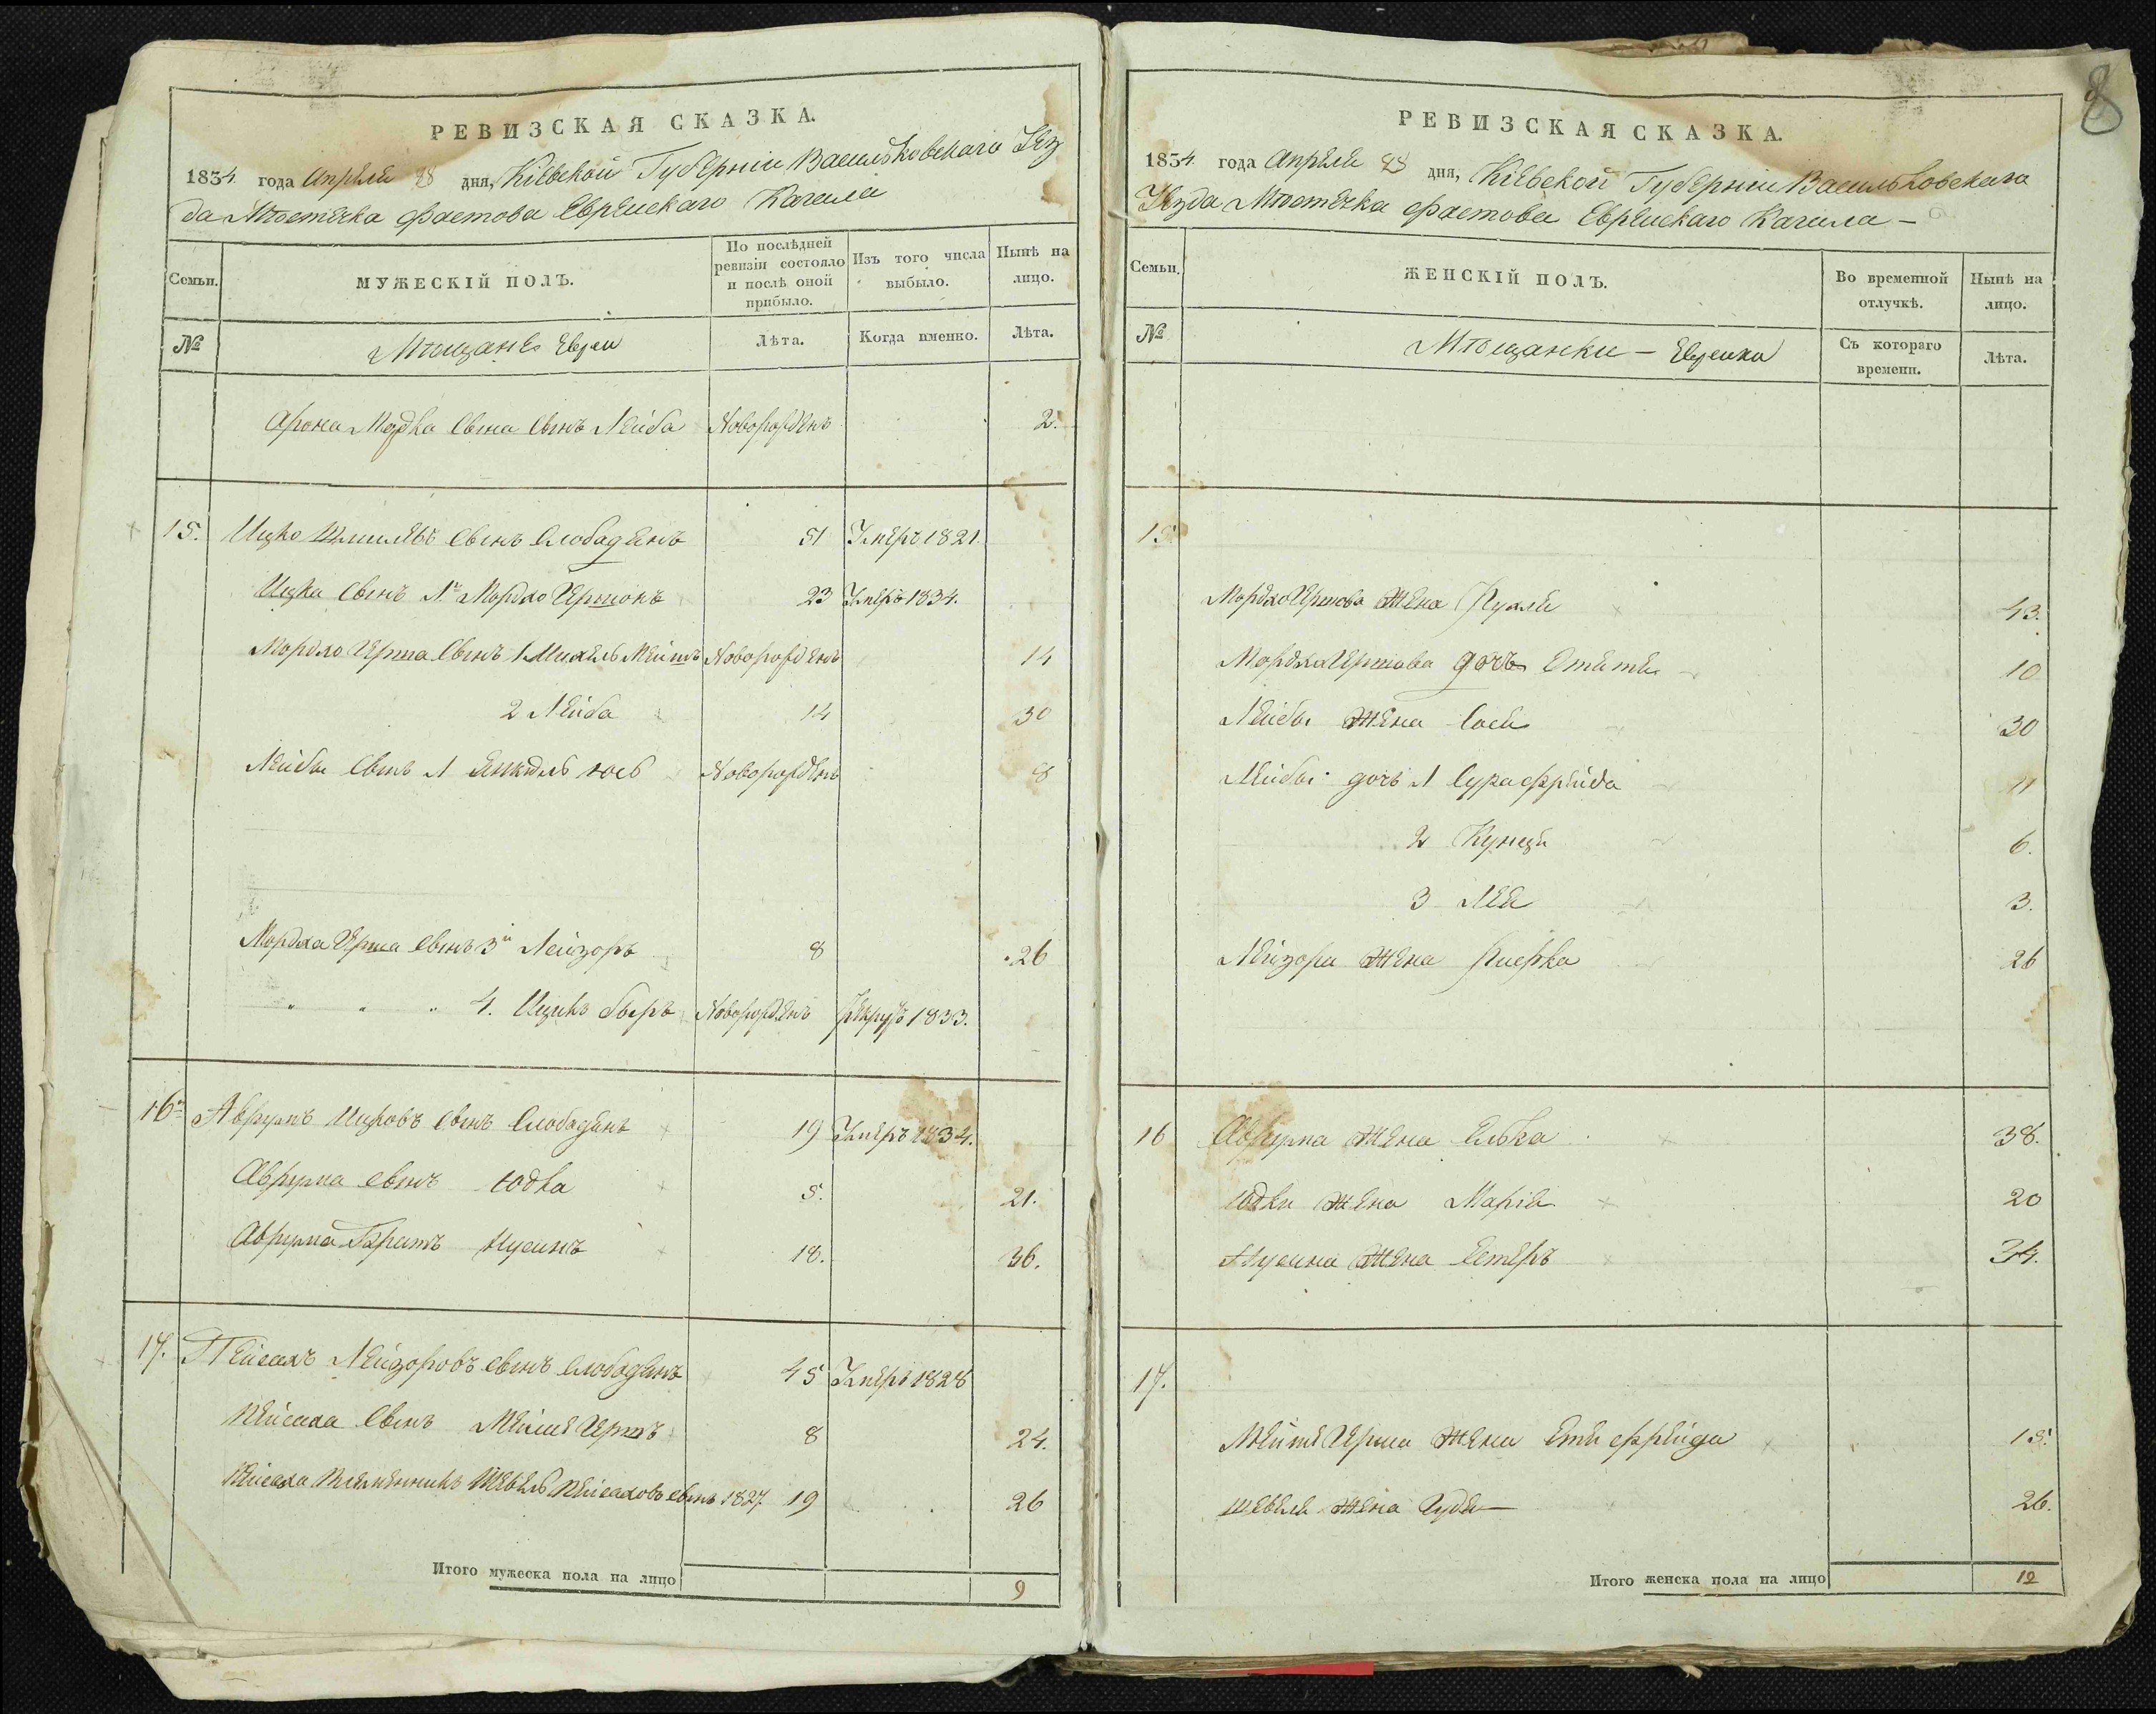 8
РЕВИЗСКАЯ СКАЗКА.
1834 года Апреля 28 дня, Кіевской Губерніи Васильковскаго Уѣз
да Мѣстечка Фастова Еврейскаго Кагала
Семьи.
МУЖЕСКІЙ ПОЛЪ.
По послѣдней ревизіи состояло и послѣ оной прибыло.
Изъ того числа выбыло.
Нынѣ на лицо.
№
Мѣщане Евреи
Лѣта.
Когда именно.
Лѣта.
Арона Мордка Сына Сынъ Лейба Новорожденъ 2.
15. Ицко Шмилевъ Сынъ Слободянъ 51 Умеръ 1821.
Ицка Сынъ 1й Мордко Гершонъ 23 Умеръ 1834.
Мордко Герша Сынъ 1 Михель Мейшъ Новорожденъ 14
2 Лейба 14 30
Лейбы Сынъ 1 Янкель Юсь Новорожденъ 8
Мордка Герша Сынъ 3й Лейзоръ 8 26
" " " 4. Ицикъ Беръ Новорожденъ Рекрутъ 1833.
16й Аврумъ Ицковъ Сынъ Слободянъ 19 Умеръ 1834.
Аврума Сынъ Юдка 5. 21.
Аврума Братъ Нусинъ 18. 36.
17. Пейсахъ Лейзоровъ Сынъ Слободянъ 45 Умеръ 1828
Пейсаха Сынъ Мейше Гершъ 8 24.
Пейсаха Племенникъ Шевель Пейсаховъ Сынъ 1827. 19 26
Итого мужеска пола на лицо 9
РЕВИЗСКАЯ СКАЗКА.
1834. года Апреля 28 дня, Кіевской Губерніи Васильковскаго
Уѣзда Мѣстечка Фастова Еврейскаго Кагала —
Семьи.
ЖЕНСКІЙ ПОЛЪ.
Во временной отлучкѣ.
Нынѣ на лицо.
№
Мѣщанки — Еврейки
Съ котораго времени.
Лѣта.
15.
Мордко Гершова Жена Рухля 43.
Мордка Гершова дочь 10
Лейбы Жена Сося 30
Лейбы дочь 1 Сура Фрейда 11
2 Кунця 6.
3 Лея 3.
Лейзора Жена Ривка 26
16 Аврума Жена Елька 38.
Юдки Жена Марія 20
Нусина Жена Естеръ 34.
17.
Мейше Герша Жена Етя Фрейда 18.
Шевеля Жена Гудя — 26.
Итого женска пола на лицо 12